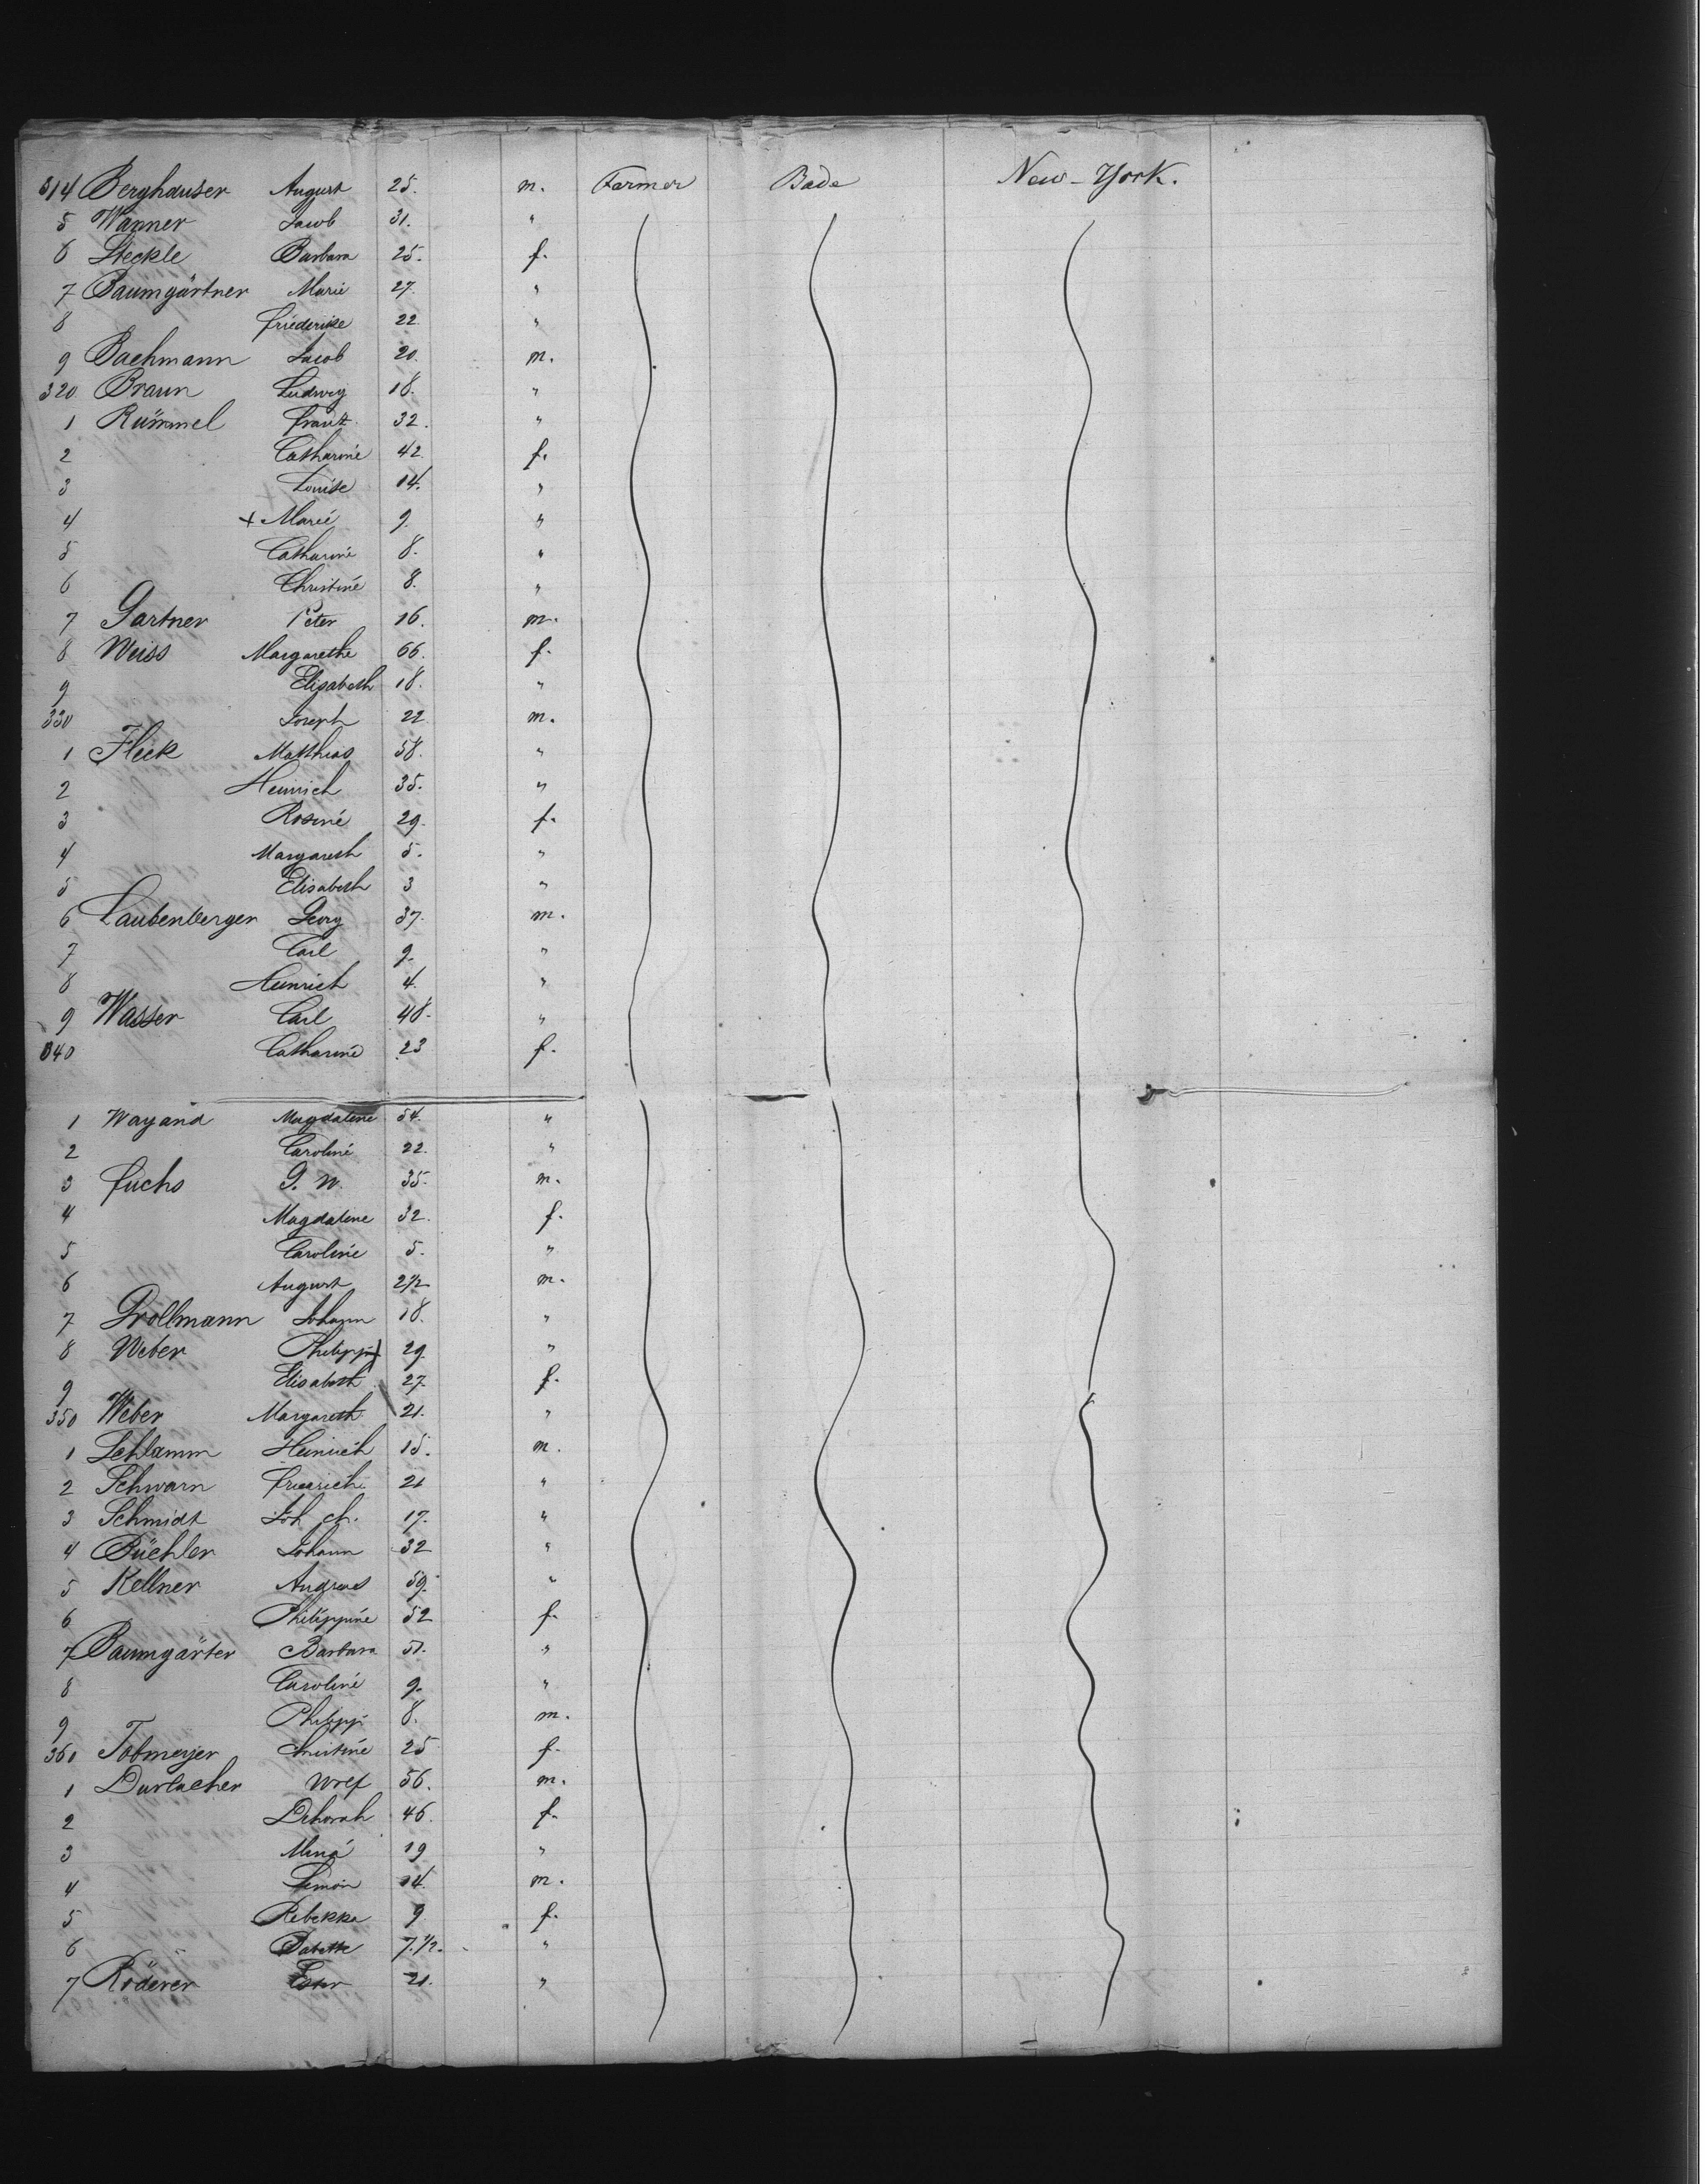 314 Berghauser August 25. m. Farmer Bade New-York.
5 Wanner Jacob 31. "
6 Steckle Barbara 25. f.
7 Baumgärtner Marie 27. "
8 Friederike 22 "
9 Bachmann Jacob 20. m.
320 Braun Ludwig 18. "
1 Rümmel Frantz 32. "
2 Catharine 42. f.
3 Louise 14. "
4 + Marie 9. "
5 Catharine 8. "
6 Christine 8. "
7 Gartner Peter 16. m.
8 Weiss Margarethe 66. f.
9 Elisabeth 18. "
330 Joseph 22 m.
1 Fleck Matthias 58. "
2 Heinrich 35. "
3 Rosine 29. f.
4 Margareth 5. "
5 Elisabeth 3 "
6 Laubenberger Georg 37. m.
7 Carl 9. "
8 Heinrich 4. "
9 Wasser Carl 48. "
340 Catharine 23 f.
1 Wayand Magdalene 54. "
2 Caroline 22. "
3 Fuchs G. W. 35. m.
4 Magdalene 32. f.
5 Caroline 5. "
6 August 2 1/2 m.
7 Prollmann Johann 18. "
8 Weber Philipp 29. "
9 Elisabeth 27. f.
350 Weber Margareth 21. "
1 Schlamm Heinrich 15. m.
2 Schwarn Friedrich 21 "
3 Schmidt Joh Ch. 17. "
4 Büchler Johann 32 "
5 Kellner Andreas 59. "
6 Philippine 52 f.
7 Baumgärter Barbara 51. "
8 Caroline 9. "
9 Philipp 8. m.
360 Tobmeyer Christine 25 f.
1 Durlacher Wolf 56. m.
2 Deborah 46. f.
3 Mina 19 "
4 Simon 14. m.
5 Rebekka 9 f.
6 Babette 7. 1/2. "
7 Röderer 21. "